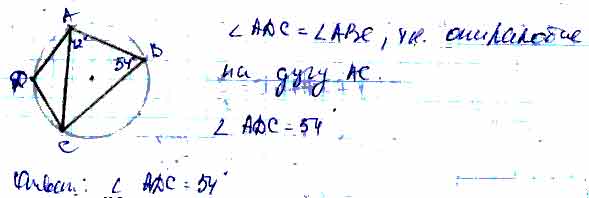 A
42°
B
54°
D
C
∠ ADC = ∠ABC, т.к. опираются
на дугу AC.
∠ ADC = 54°
Ответ: ∠ ADC = 54°